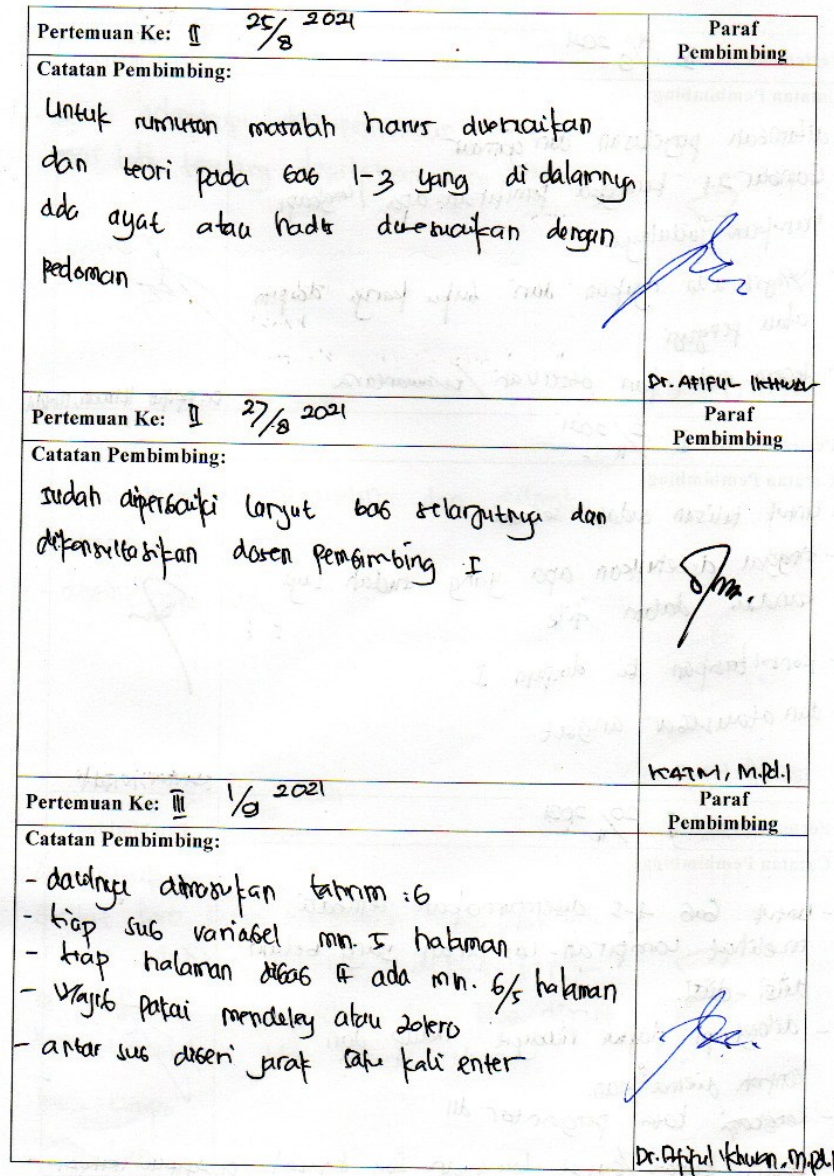 Pertemuan Ke: II 25/8 2021
Paraf
Pembimbing
Catatan Pembimbing:
Untuk rumusan masalah harus disesuaikan
dan teori pada bab 1-3 yang di dalamnya
ada ayat atau hadis disesuaikan dengan
pedoman
Dr. AFIFUL IKHWAN
Pertemuan Ke: II 27/8 2021
Paraf
Pembimbing
Catatan Pembimbing:
sudah diperbaiki lanjut bab selanjutnya dan
dikonsultasikan dosen pembimbing I
KATNI, M.Pd.I
Pertemuan Ke: III 1/9 2021
Paraf
Pembimbing
Catatan Pembimbing:
- dalilnya dimasukan tahrim :6
- tiap sub variabel mn. 5 halaman
- tiap halaman dibab II ada mn. 6/5 halaman
- Wajib pakai mendeley atau zotero
- antar sub diberi jarak satu kali enter
Dr. Afiful Ikhwan, M.Pd.I